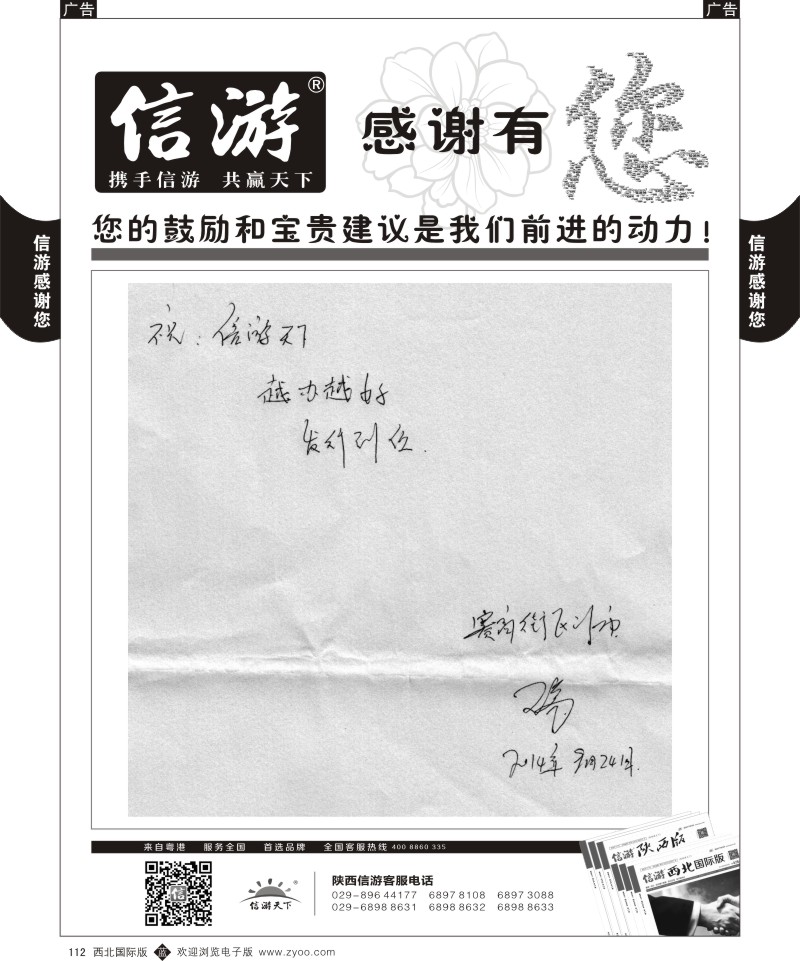 广告
广告
信游®
携手信游 共赢天下
感谢有您
您的鼓励和宝贵建议是我们前进的动力!
信游感谢您
信游感谢您
祝:信游天下
越办越好
发行到位.
2014年 9月24日.
来自粤港 服务全国 首选品牌 全国客服热线 400 8860 335
信游
信游天下
陕西信游客服电话
029-896 44177 6897 8108 6897 3088
029-6898 8631 6898 8632 6898 8633
信游 陕西版
信游 西北国际版
112 西北国际版 蓝 欢迎浏览电子版 www.zyoo.com